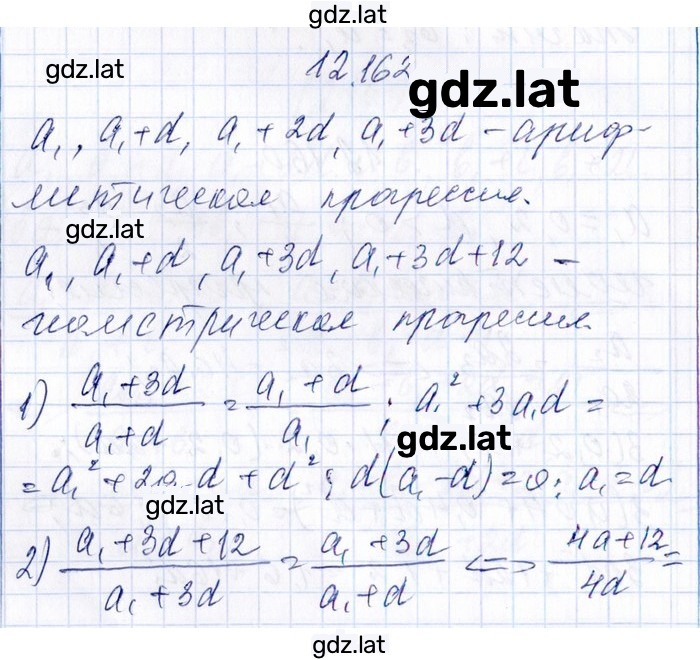 gdz.lat
12.162
gdz.lat
gdz.lat
a₁, a₁+d, a₁+2d, a₁+3d - ариф-
метическая прогрессия.
gdz.lat
a₁, a₁+d, a₁+3d, a₁+3d+12 -
геометрическая прогрессия.
1) (a₁+3d)/(a₁+d) = (a₁+d)/a₁ ; a₁²+3a₁d =
gdz.lat
= a₁²+2a₁d+d²; d(a₁-d)=0; a₁=d
gdz.lat
2) (a₁+3d+12)/(a₁+3d) = (a₁+3d)/(a₁+d) <=> (4a+12)/4d =
gdz.lat